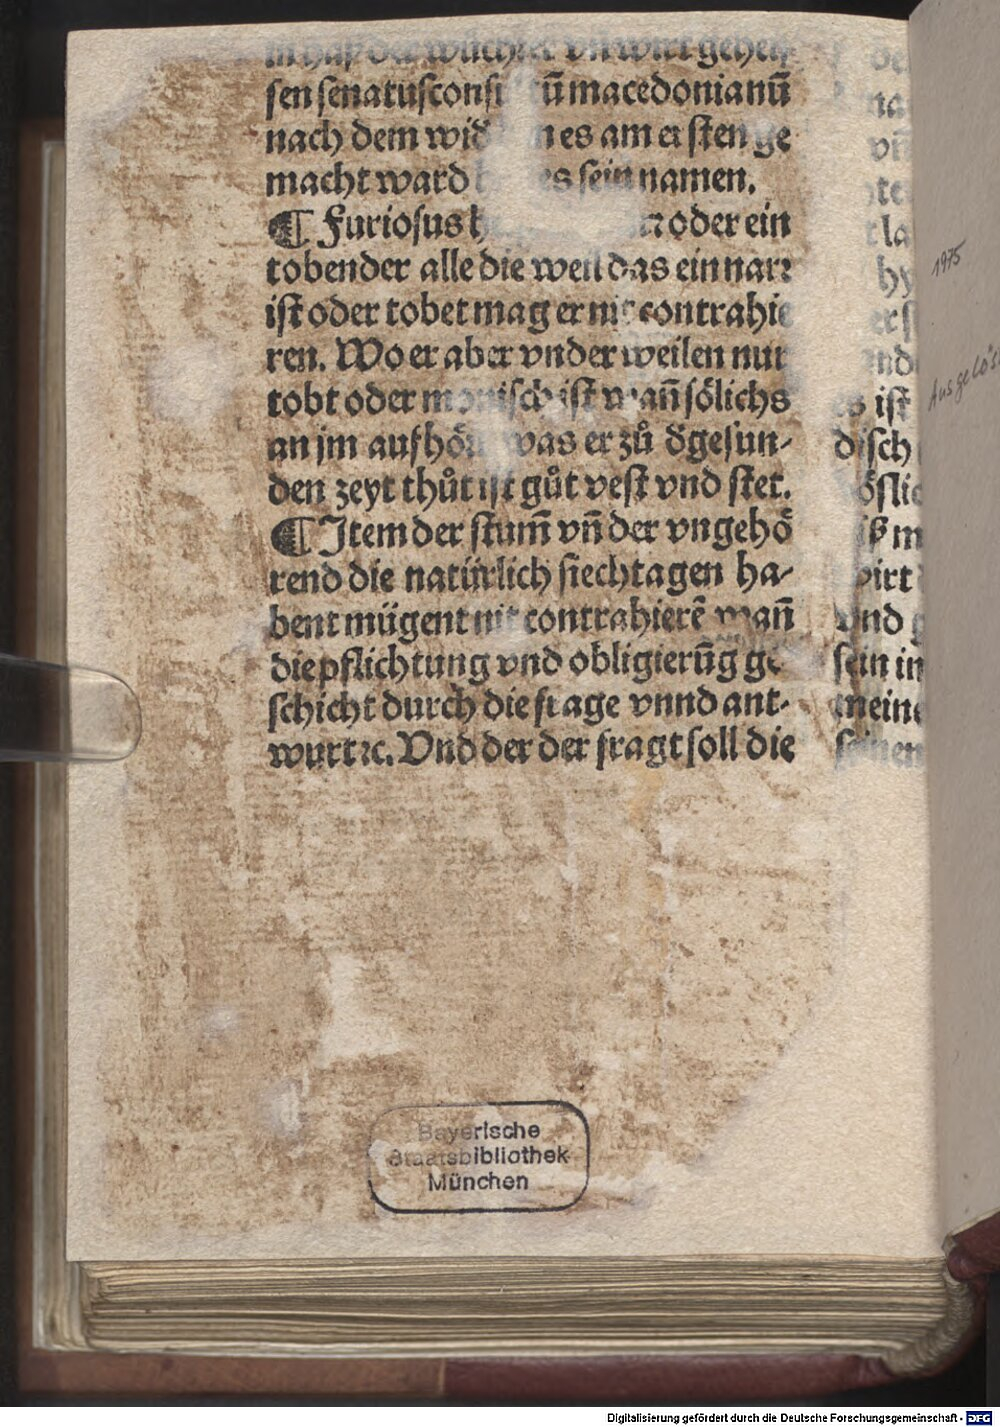 in haß der wůchrer vn̄ wirt geheis
sen senatusconsi tū macedonianū
nach dem wid n es am ersten ge
macht ward es sein namen.
¶ Furiosus oder ein
tobender alle die weil das ein narr
ist oder tobet mag er nit contrahie
ren. Wo er aber vnder weilen nur
tobt oder monisch ist wan̄ sölichs
an im aufhör was er zů d̄ gesun⸗
den zeyt thůt ist gůt vest vnd stet.
¶ Item der stum̄ vn̄ der vngehö
rend die natürlich siechtagen ha⸗
bent mügent nit contrahierē wan̄
die pflichtung vnd obligierūg ge
schicht durch die frage vnnd ant⸗
wurt ꝛc. Vnd der der fragt soll die
na
vn̄
la
hy
nd
es ist
disch
öslic
iß m
wirt
vnd g
sein in
meine
seinen
1975
Ausgelös
Bayerische
Staatsbibliothek
München
Digitalisierung gefördert durch die Deutsche Forschungsgemeinschaft - DFG